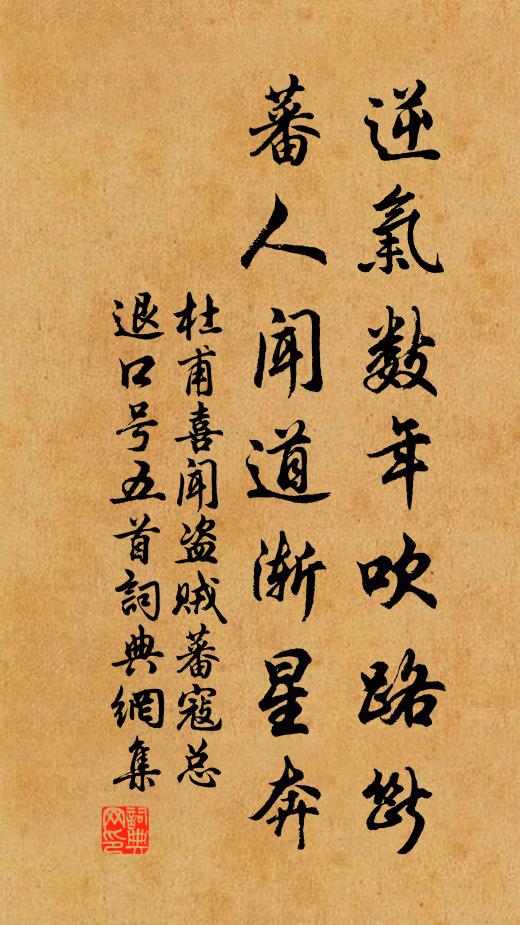 逆氣數年吹路斷
蕃人聞道漸星奔
杜甫喜聞盗賊蕃寇总
退口号五首詞典網集
詞典网印